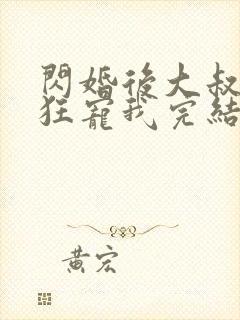 閃婚後大叔
狂寵我完結
黃宏